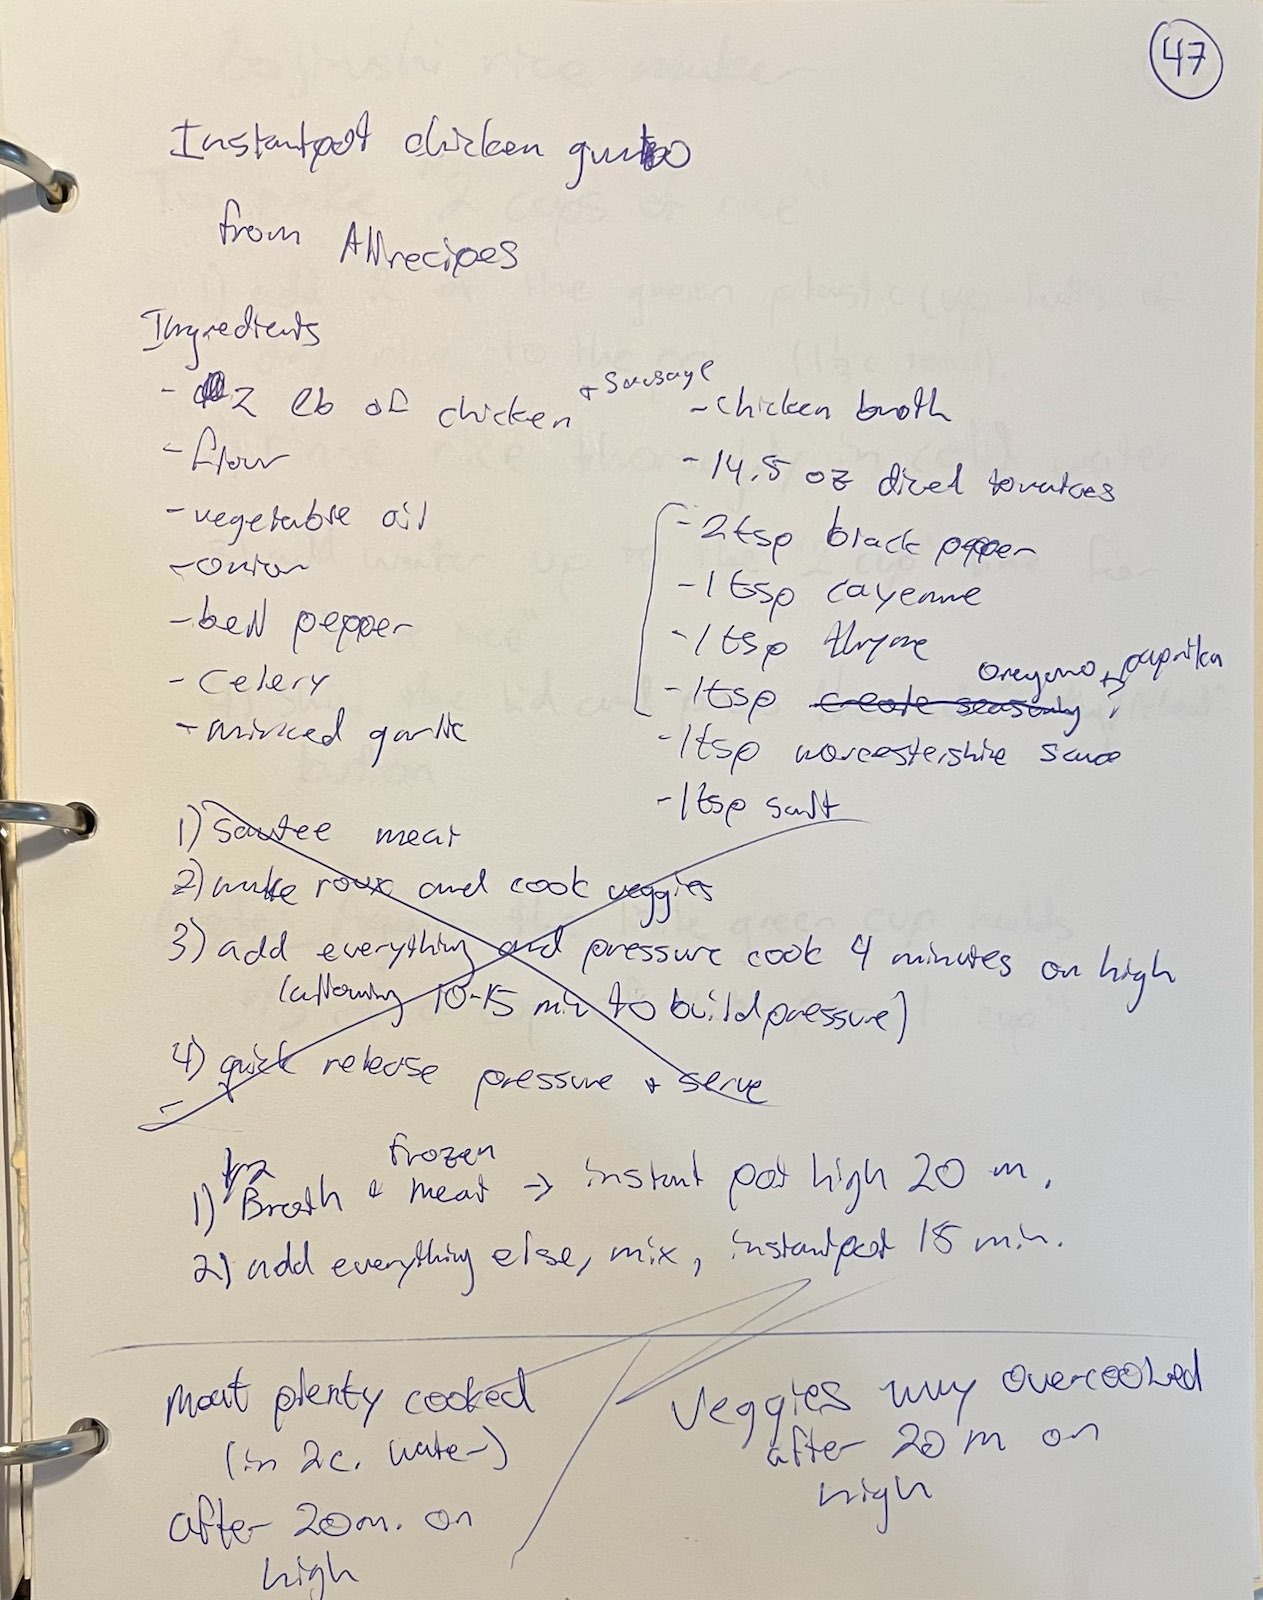 47
Instantpot chicken gumbo
from Allrecipes
Ingredients
- 2 lb of chicken + sausage
- flour
- vegetable oil
- onion
- bell pepper
- celery
- minced garlic
- chicken broth
- 14.5 oz diced tomatoes
- 2 tsp black pepper
- 1 tsp cayenne
- 1 tsp thyme
oregano + paprika
- 1 tsp creole seasoning ?
- 1 tsp worcestershire sauce
- 1 tsp salt
1) sautee meat
2) make roux and cook veggies
3) add everything and pressure cook 4 minutes on high
(allowing 10-15 min to build pressure)
4) quick release pressure + serve
1/2 frozen
1) Broth + meat → instant pot high 20 m.
2) add everything else, mix, instantpot 15 min.
Meat plenty cooked
(in 2c. water)
after 20m. on
high
Veggies way overcooked
after 20 m on
high